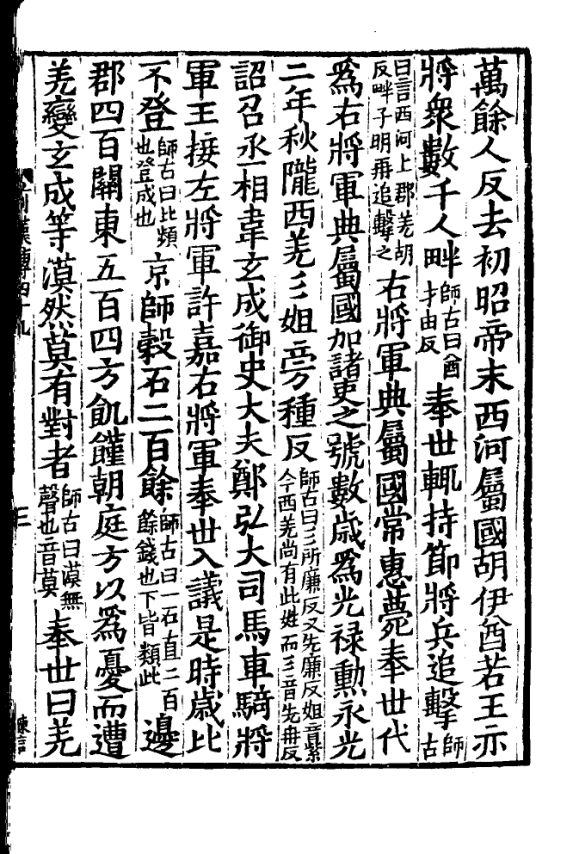 萬餘人反去初昭帝末西河屬國胡伊酋若王亦
將衆數千人畔師古曰酋才由反奉世輒持節將兵追擊師古
曰言西河上郡羌胡反畔子明再追擊之右將軍典屬國常惠薨奉世代
爲右將軍典屬國加諸吏之號數歲爲光祿勳永光
二年秋隴西羌彡姐旁種反師古曰彡所廉反又先廉反姐音紫今西羌尚有此姓而彡音先冉反
詔召丞相韋玄成御史大夫鄭弘大司馬車騎將
軍王接左將軍許嘉右將軍奉世入議是時歲比
不登師古曰比類也登成也京師穀石二百餘師古曰一石直二百餘錢也下皆類此邊
郡四百關東五百四方飢饉朝庭方以爲憂而遭
羌變玄成等漠然莫有對者師古曰漠無聲也音莫奉世曰羌
三